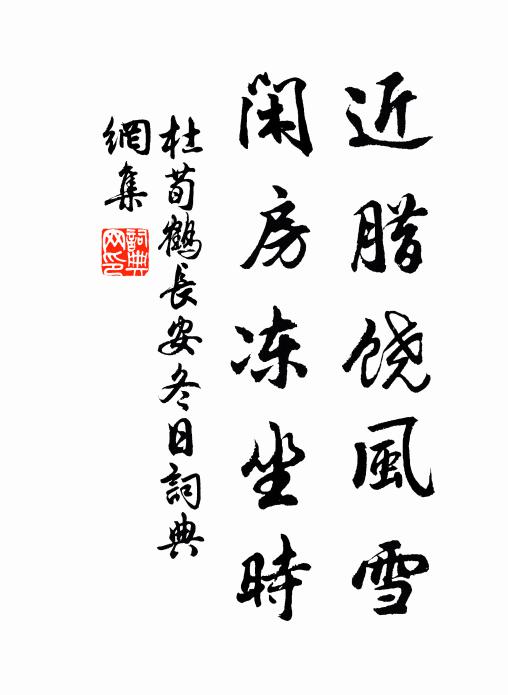 近腊饶風雪
闲房冻坐時
杜荀鶴長安冬日詞典
網集
詞典
网印